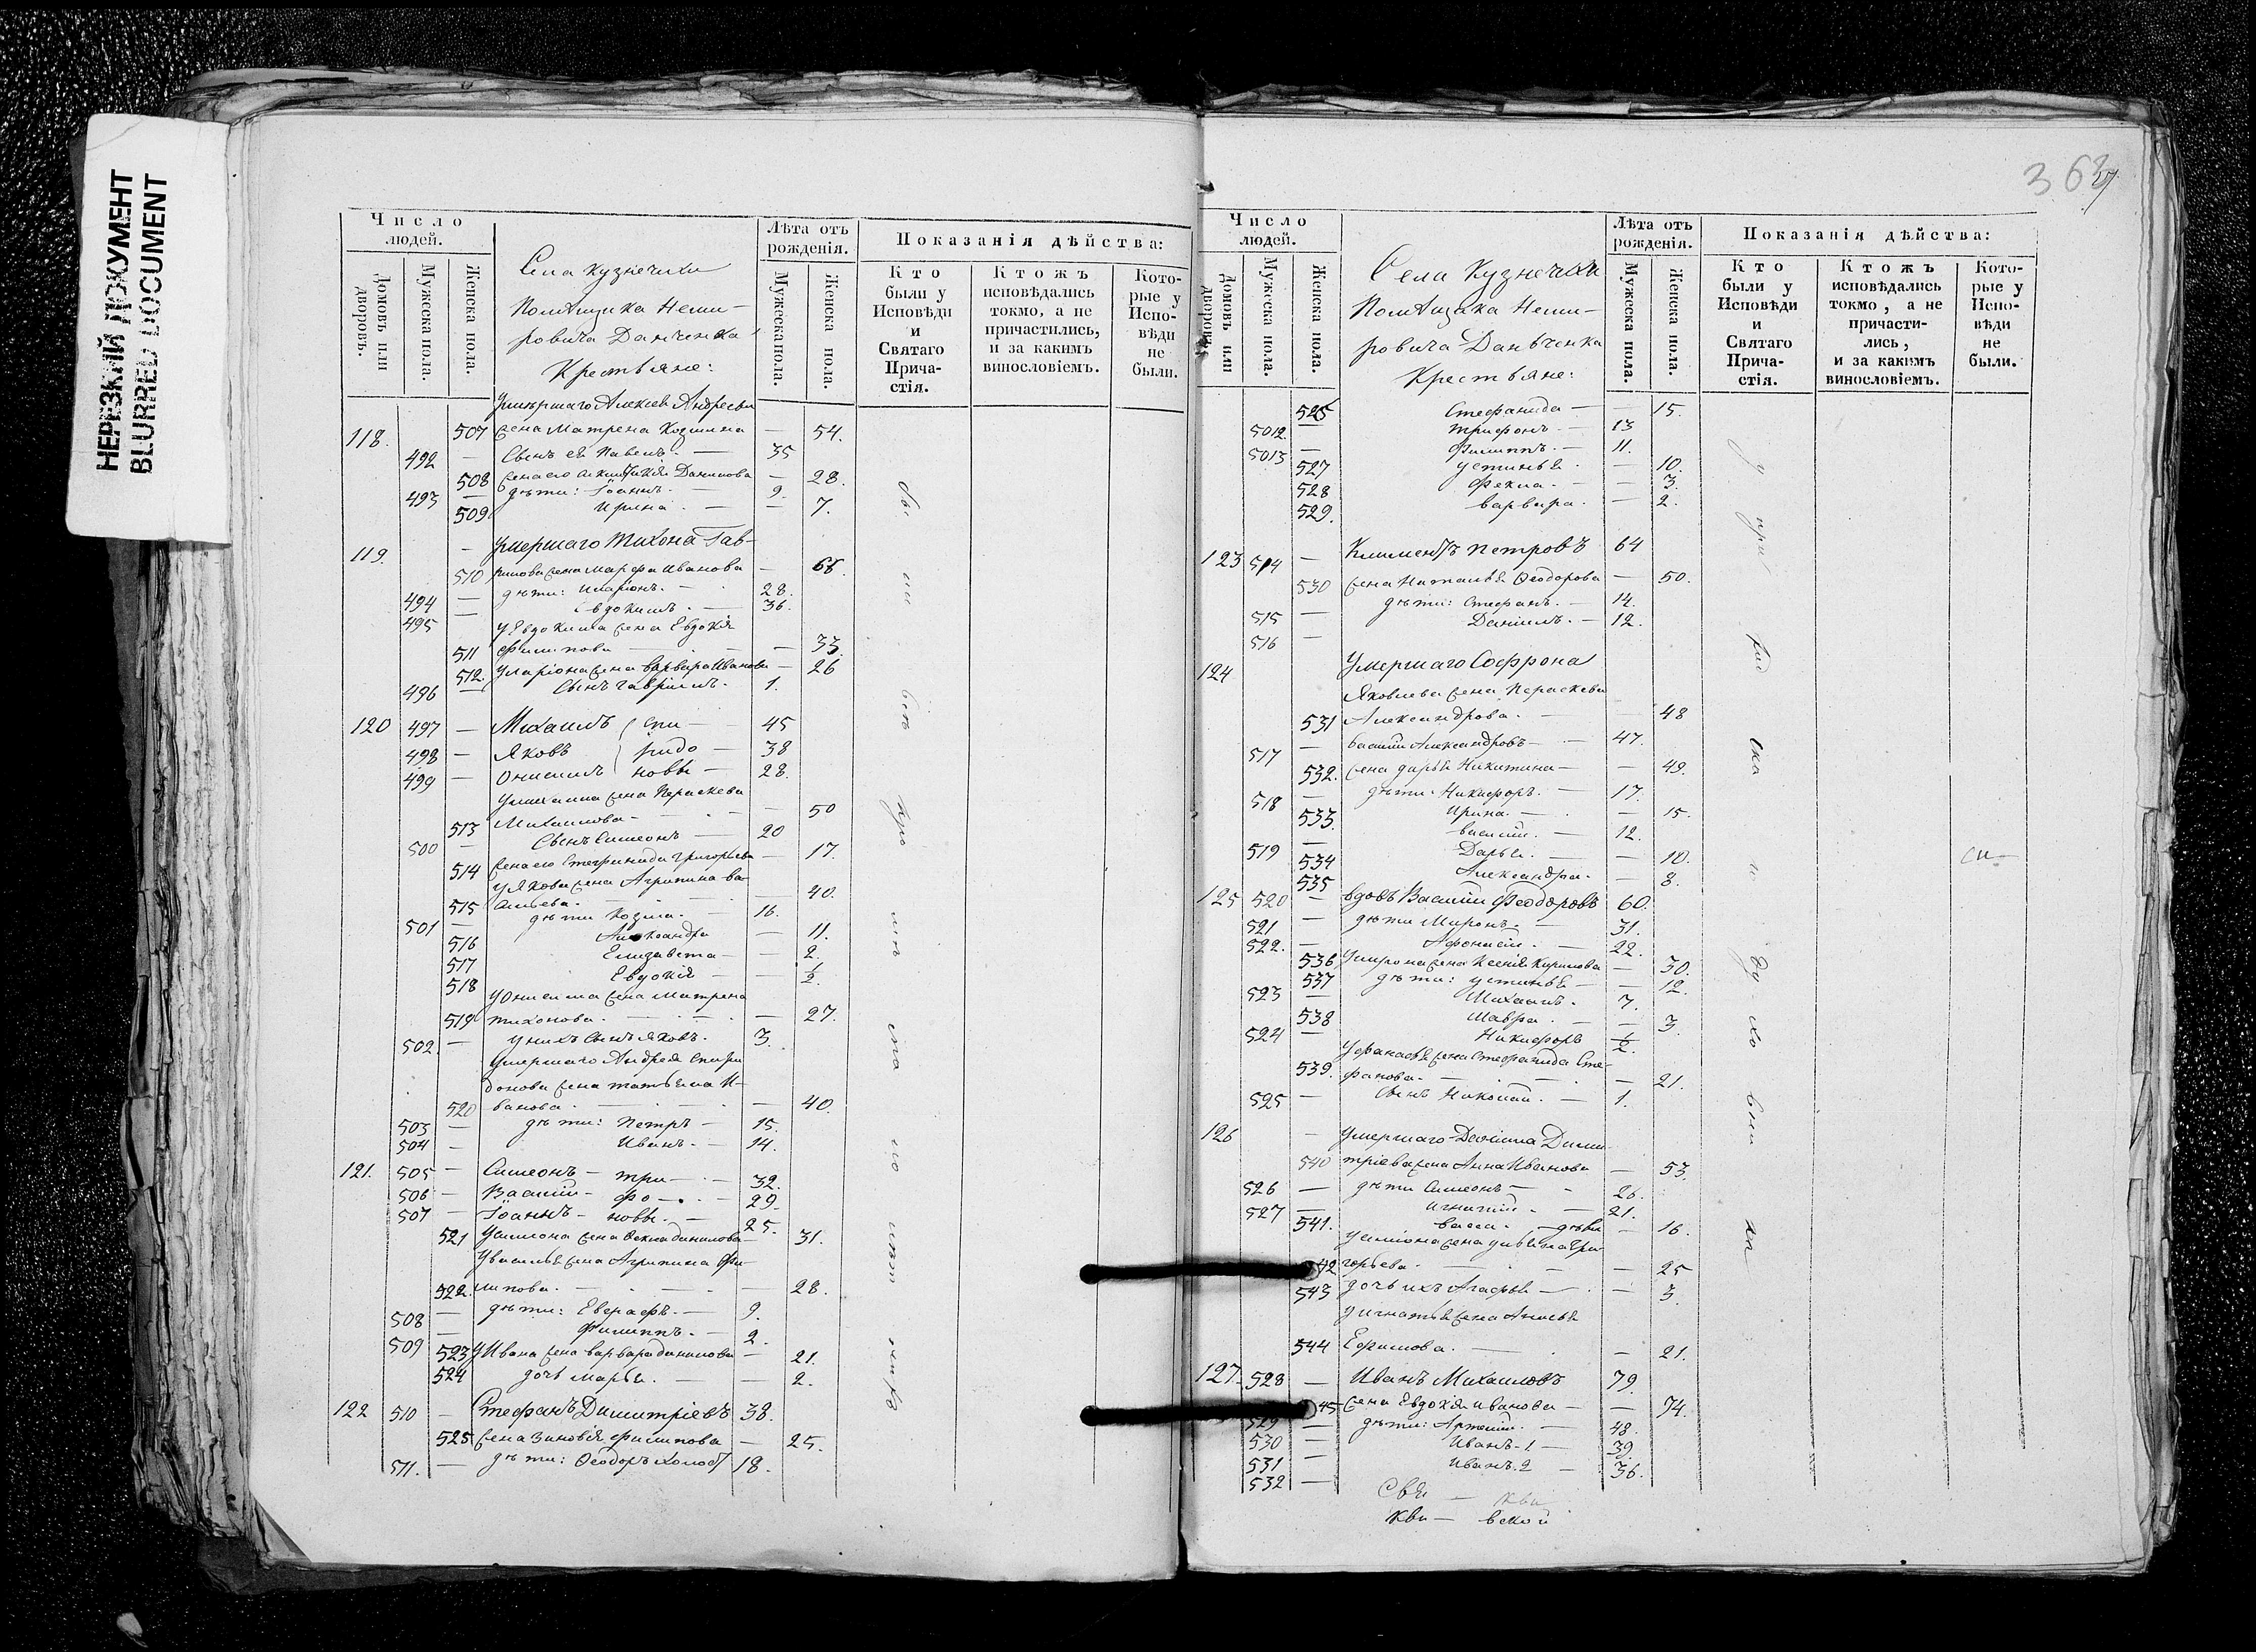 НЕРЕЗКИЙ ДОКУМЕНТ
BLURRED DOCUMENT
Число людей.
Домовъ или дворовъ.
Мужеска пола.
Женска пола.
Села Кузнечихи
Помѣщика Неми-
ровича Данченка
Крестьяне:
Лѣта отъ рожденія.
Мужеска пола.
Женска пола.
Показанія дѣйства:
Кто были у Исповѣди и Святаго Прича-стія.
Ктожъ исповѣдались токмо, а не причастились, и за какимъ винословіемъ.
Кото-рые у Испо-вѣди не были.
Умершаго Алексея Андреева
118. 507 жена Матрена Козмина — 54.
492 — Сынъ ея Павелъ. — 35
508 жена его Данилова — 28.
493 — дѣти: Іоаннъ. — 9.
509 Ирина. — — 7.
119. — Умершаго Тихона Гав-
510 рилова жена Марфа Иванова — 68.
494 — дѣти: Иларіонъ. — 28.
495 — Евдокимъ. — 36.
У Евдокима жена Евдокія
511 Филипова — — 33.
512. У Иларіона жена Варвара Иванова — 26
496 — Сынъ Гавріилъ. 1.
120 497 — Михаилъ Спи — 45
498 — Яковъ ридо — 38
499 — Онисимъ новы — 28.
У Михаила жена Параскева
513 Михаилова — — 50
500 — Сынъ Симеонъ — 20
514 жена его Стефанида Григорьева — 17.
У Якова жена Агрипина Ва-
515 сильева. — — 40.
501 — дѣти Козма. — 16.
516 Александра — 11.
517 Елизавета — — 2.
518 Евдокія — — ½.
У Онисима жена Матрена
519 Тихонова. — — 27.
502. — у нихъ сынъ Яковъ. 3.
Умершаго Андрея Спири
донова жена Татьяна И-
520 ванова. — — 40.
503 — дѣти: Петръ — 15.
504 — Иванъ. — 14.
121. 505 — Симеонъ — Три — 32.
506 — Василій — фо — 29.
507 — Іоаннъ — новы. — 25.
521 У Симеона жена Фекла Данилова — 31.
У Василья жена Агрипина Фи-
522. липова. — — 28.
508 — дѣти: Евграфъ. — 9.
509 — Филиппъ. — 2.
523 У Ивана жена Варвара Данилова — 21.
524 дочь Марья. — — 2.
122 510 — Стефанъ Димитріевъ 38.
525 жена Зиновія Филипова — 25.
511. — дѣти: Ѳеодоръ холост 18.
бы
ли
при
367
Число людей.
Домовъ или дворовъ.
Мужеска пола.
Женска пола.
Села Кузнечихи
Помѣщика Неми-
ровича Даньченка
Крестьяне:
Лѣта отъ рожденія.
Мужеска пола.
Женска пола.
Показанія дѣйства:
Кто были у Исповѣди и Святаго Прича-стія.
Ктожъ исповѣдались токмо, а не причасти-лись, и за какимъ винословіемъ.
Кото-рые у Испо-вѣди не были.
526 Стефанида — — 15.
5012. — Трифонъ. — 13
5013 — Филиппъ. — 11.
527 Устинья. — 10.
528 Фекла. — — 3.
529. Варвара. — 2.
123 514 — Климентъ Петровъ 64
530 жена Наталья Ѳеодорова — 50.
515 — дѣти: Стефанъ. — 14.
516 — Даніилъ. — 12.
124 Умершаго Софрона
Яковлева жена Параскева
531 Александрова. — — 48
517 — Василій Александровъ — 47.
532. жена Дарья Никитина — — 49.
518 — дѣти: Никифоръ. — 17.
533. Ирина. — — 15.
519 — Василій. — 12.
534 Дарья. — — 10.
535 Александра. — 8.
125 520 — вдовъ Василій Феодоровъ 60.
521 — дѣти Миронъ. — 31.
522. — Афонасій. — 22.
536 У Мирона жена Ксенія Кирилова — 30.
537 дѣти: Устинья — — 12.
523 — Михаилъ. 7.
538 Мавра. — 3.
524 — Никифоръ ½.
У Фанасья жена Стефанида Сте-
539. фанова. — — 21.
525 — Сынъ Николай. — 1.
126 — Умершаго Даніила Дими
540 тріева жена Анна Иванова — 53.
526 — дѣти Симеонъ — 26.
527 — Игнатій. — 21.
541. Васса. — дѣвка — 16.
У Симіона жена Ульяна Гри-
542 горьева. — — 25
543 дочь ихъ Агафья — — 3.
У Игнатья жена Анисья
544 Ефимова. — — 21.
127. 528 — Иванъ Михаиловъ 79.
545 жена Евдокія Иванова — — 74.
529 — дѣти: Артемій. — 48.
530 — Иванъ 1 — 39.
531 — Иванъ 2 — 36.
532 —